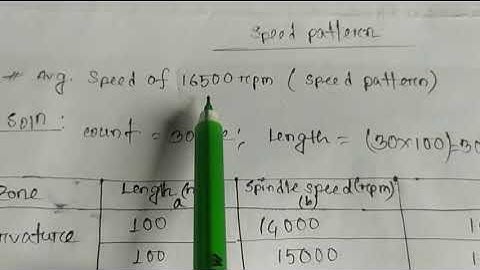 Speed pattern
# Avg. Speed of 16500 rpm ( speed pattern)
Soln: count = 30 ; Length = (30×100)=30
Zone Length Spindle speed (rpm)
a (b)
100 14000 1
100 15000 1